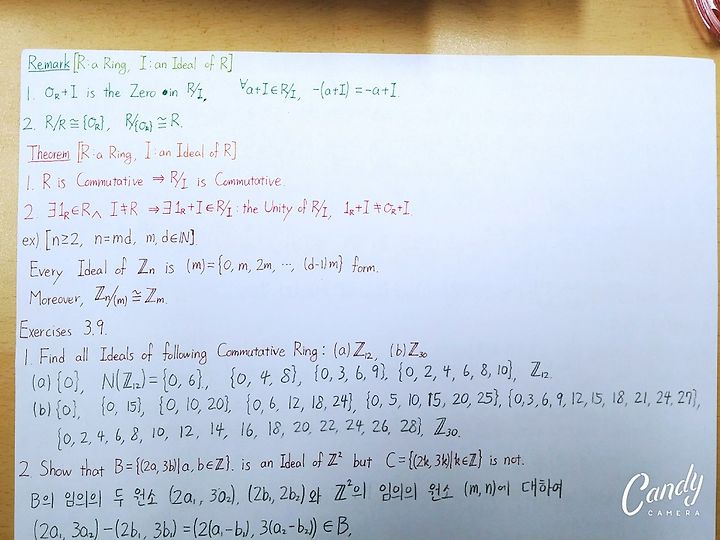 Remark [R: a Ring, I: an Ideal of R]
1. 0_R+I is the Zero in R/I, ∀a+I∈R/I, -(a+I)=-a+I.
2. R/R≅{0_R}, R/{0_R}≅R.
Theorem [R: a Ring, I: an Ideal of R]
1. R is Commutative ⇒ R/I is Commutative.
2. ∃1_R∈R ∧ I≠R ⇒∃1_R+I∈R/I: the Unity of R/I, 1_R+I≠0_R+I.
ex) [n≥2, n=md, m, d∈ℕ].
Every Ideal of ℤn is (m)={0, m, 2m, ⋯, (d-1)m} form.
Moreover, ℤn/(m)≅ℤm.
Exercises 3.9.
1. Find all Ideals of following Commutative Ring: (a) ℤ₁₂, (b) ℤ₃₀
(a) {0}, N(ℤ₁₂)={0, 6}, {0, 4, 8}, {0, 3, 6, 9}, {0, 2, 4, 6, 8, 10}, ℤ₁₂.
(b) {0}, {0, 15}, {0, 10, 20}, {0, 6, 12, 18, 24}, {0, 5, 10, 15, 20, 25}, {0, 3, 6, 9, 12, 15, 18, 21, 24, 27},
{0, 2, 4, 6, 8, 10, 12, 14, 16, 18, 20, 22, 24, 26, 28}, ℤ₃₀.
2. Show that B={(2a, 3b)|a, b∈ℤ}. is an Ideal of ℤ² but C={(2k, 3k)|k∈ℤ} is not.
B의 임의의 두 원소 (2a₁, 3a₂), (2b₁, 2b₂)와 ℤ²의 임의의 원소 (m, n)에 대하여
(2a₁, 3a₂)-(2b₁, 3b₂)=(2(a₁-b₁), 3(a₂-b₂))∈B,
Candy
CAMERA